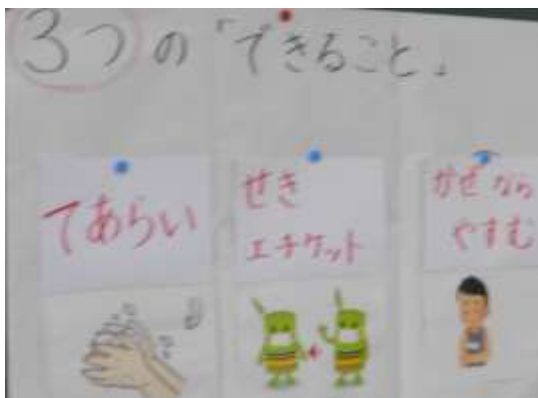 3つの「できること」
てあらい
せき
エチケット
かぜなら
やすむ